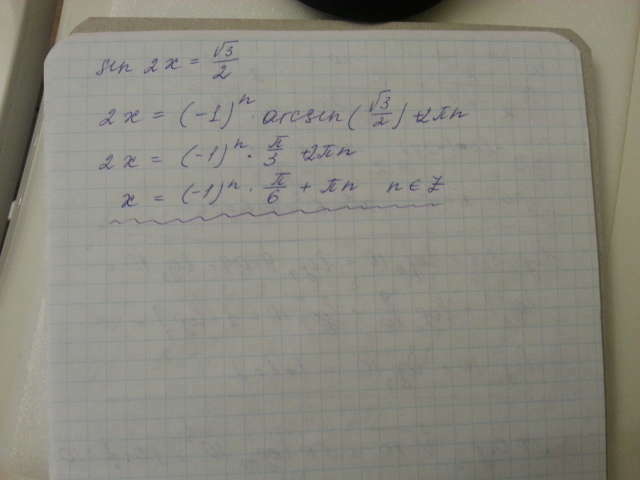 sin 2x = √3/2
2x = (-1)^n · arcsin(√3/2) + 2πn
2x = (-1)^n · π/3 + 2πn
x = (-1)^n · π/6 + πn n ∈ Z